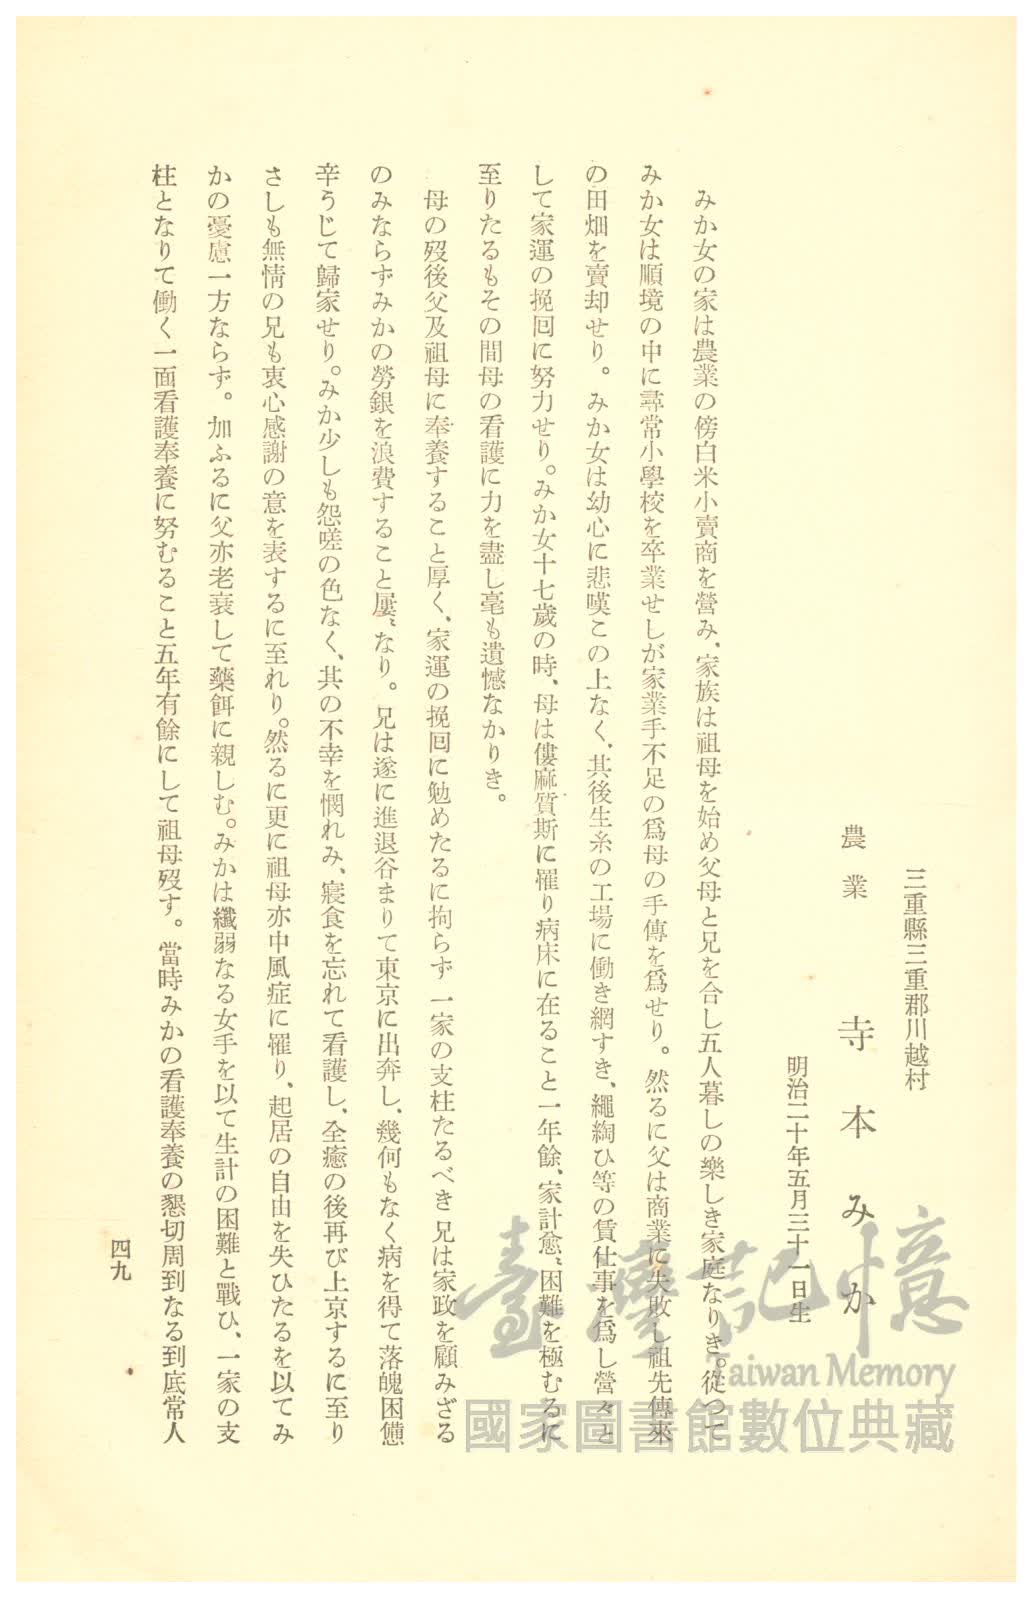 三重縣三重郡川越村
農業　寺本みか
明治二十年五月三十一日生
みか女の家は農業の傍白米小賣商を營み、家族は祖母を始め父母と兄を合し五人暮しの樂しき家庭なりき。從つて
みか女は順境の中に尋常小學校を卒業せしが家業手不足の爲母の手傳を爲せり。然るに父は商業に失敗し祖先傳來
の田畑を賣却せり。みか女は幼心に悲嘆この上なく、其後生糸の工場に働き網すき、繩綯ひ等の賃仕事を爲し營々と
して家運の挽回に努力せり。みか女十七歲の時、母は僂麻質斯に罹り病床に在ること一年餘、家計愈〻困難を極むるに
至りたるもその間母の看護に力を盡し毫も遺憾なかりき。
母の歿後父及祖母に奉養すること厚く、家運の挽回に勉めたるに拘らず一家の支柱たるべき兄は家政を顧みざる
のみならずみかの勞銀を浪費すること屢〻なり。兄は遂に進退谷まりて東京に出奔し、幾何もなく病を得て落魄困憊
辛うじて歸家せり。みか少しも怨嗟の色なく、其の不幸を憫れみ、寢食を忘れて看護し、全癒の後再び上京するに至り
さしも無情の兄も衷心感謝の意を表するに至れり。然るに更に祖母亦中風症に罹り、起居の自由を失ひたるを以てみ
かの憂慮一方ならず。加ふるに父亦老衰して藥餌に親しむ。みかは纖弱なる女手を以て生計の困難と戰ひ、一家の支
柱となりて働く一面看護奉養に努むること五年有餘にして祖母歿す。當時みかの看護奉養の懇切周到なる到底常人
四九
臺灣記憶
Taiwan Memory
國家圖書館數位典藏